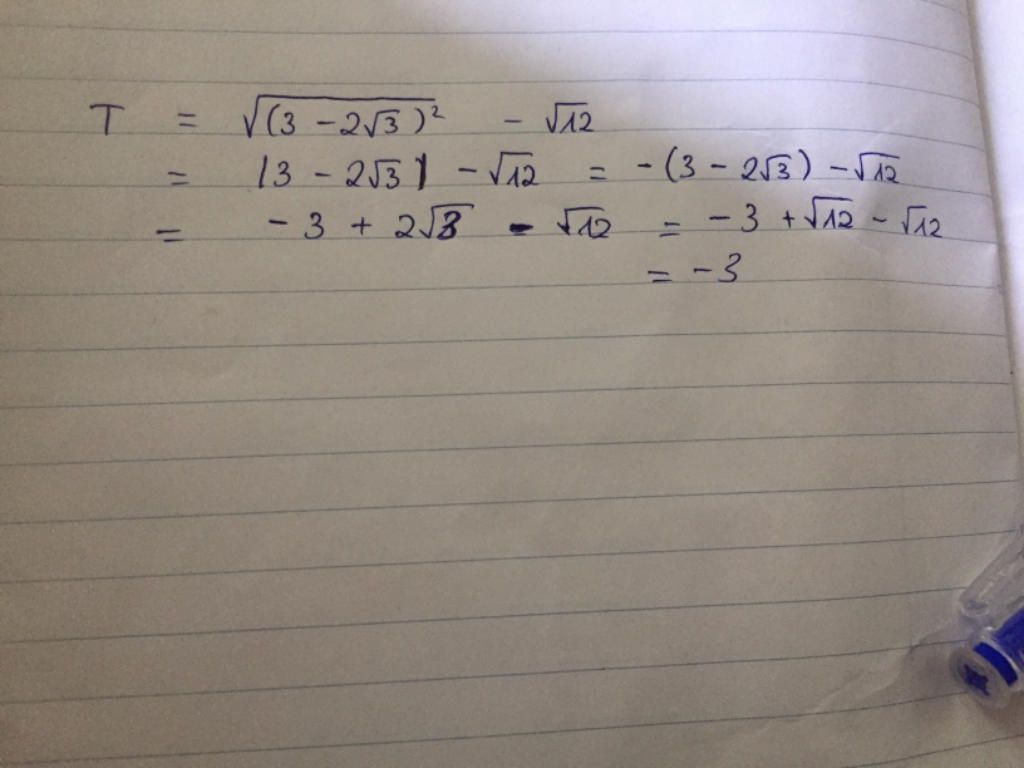 T = √(3 - 2√3)² - √12
= |3 - 2√3| - √12 = -(3 - 2√3) - √12
= -3 + 2√3 - √12 = -3 + √12 - √12
= -3